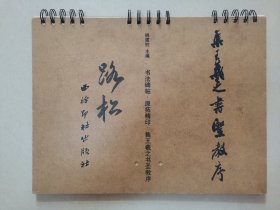 集王羲之書聖教序
主編
书法碑帖 原拓精印 集王羲之书圣教序
路松
西泠印社出版社